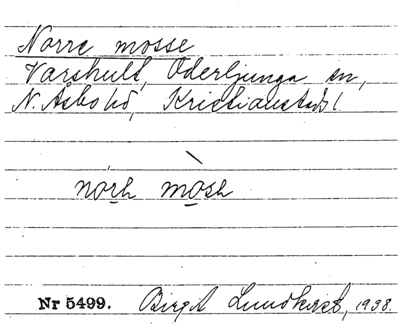 Norre mosse
Varshult, Oderljunga sn,
N. Åsbo hd, Kristianstads l.
norh mosh
Nr 5499. Birgit Lundkvist, 1938.